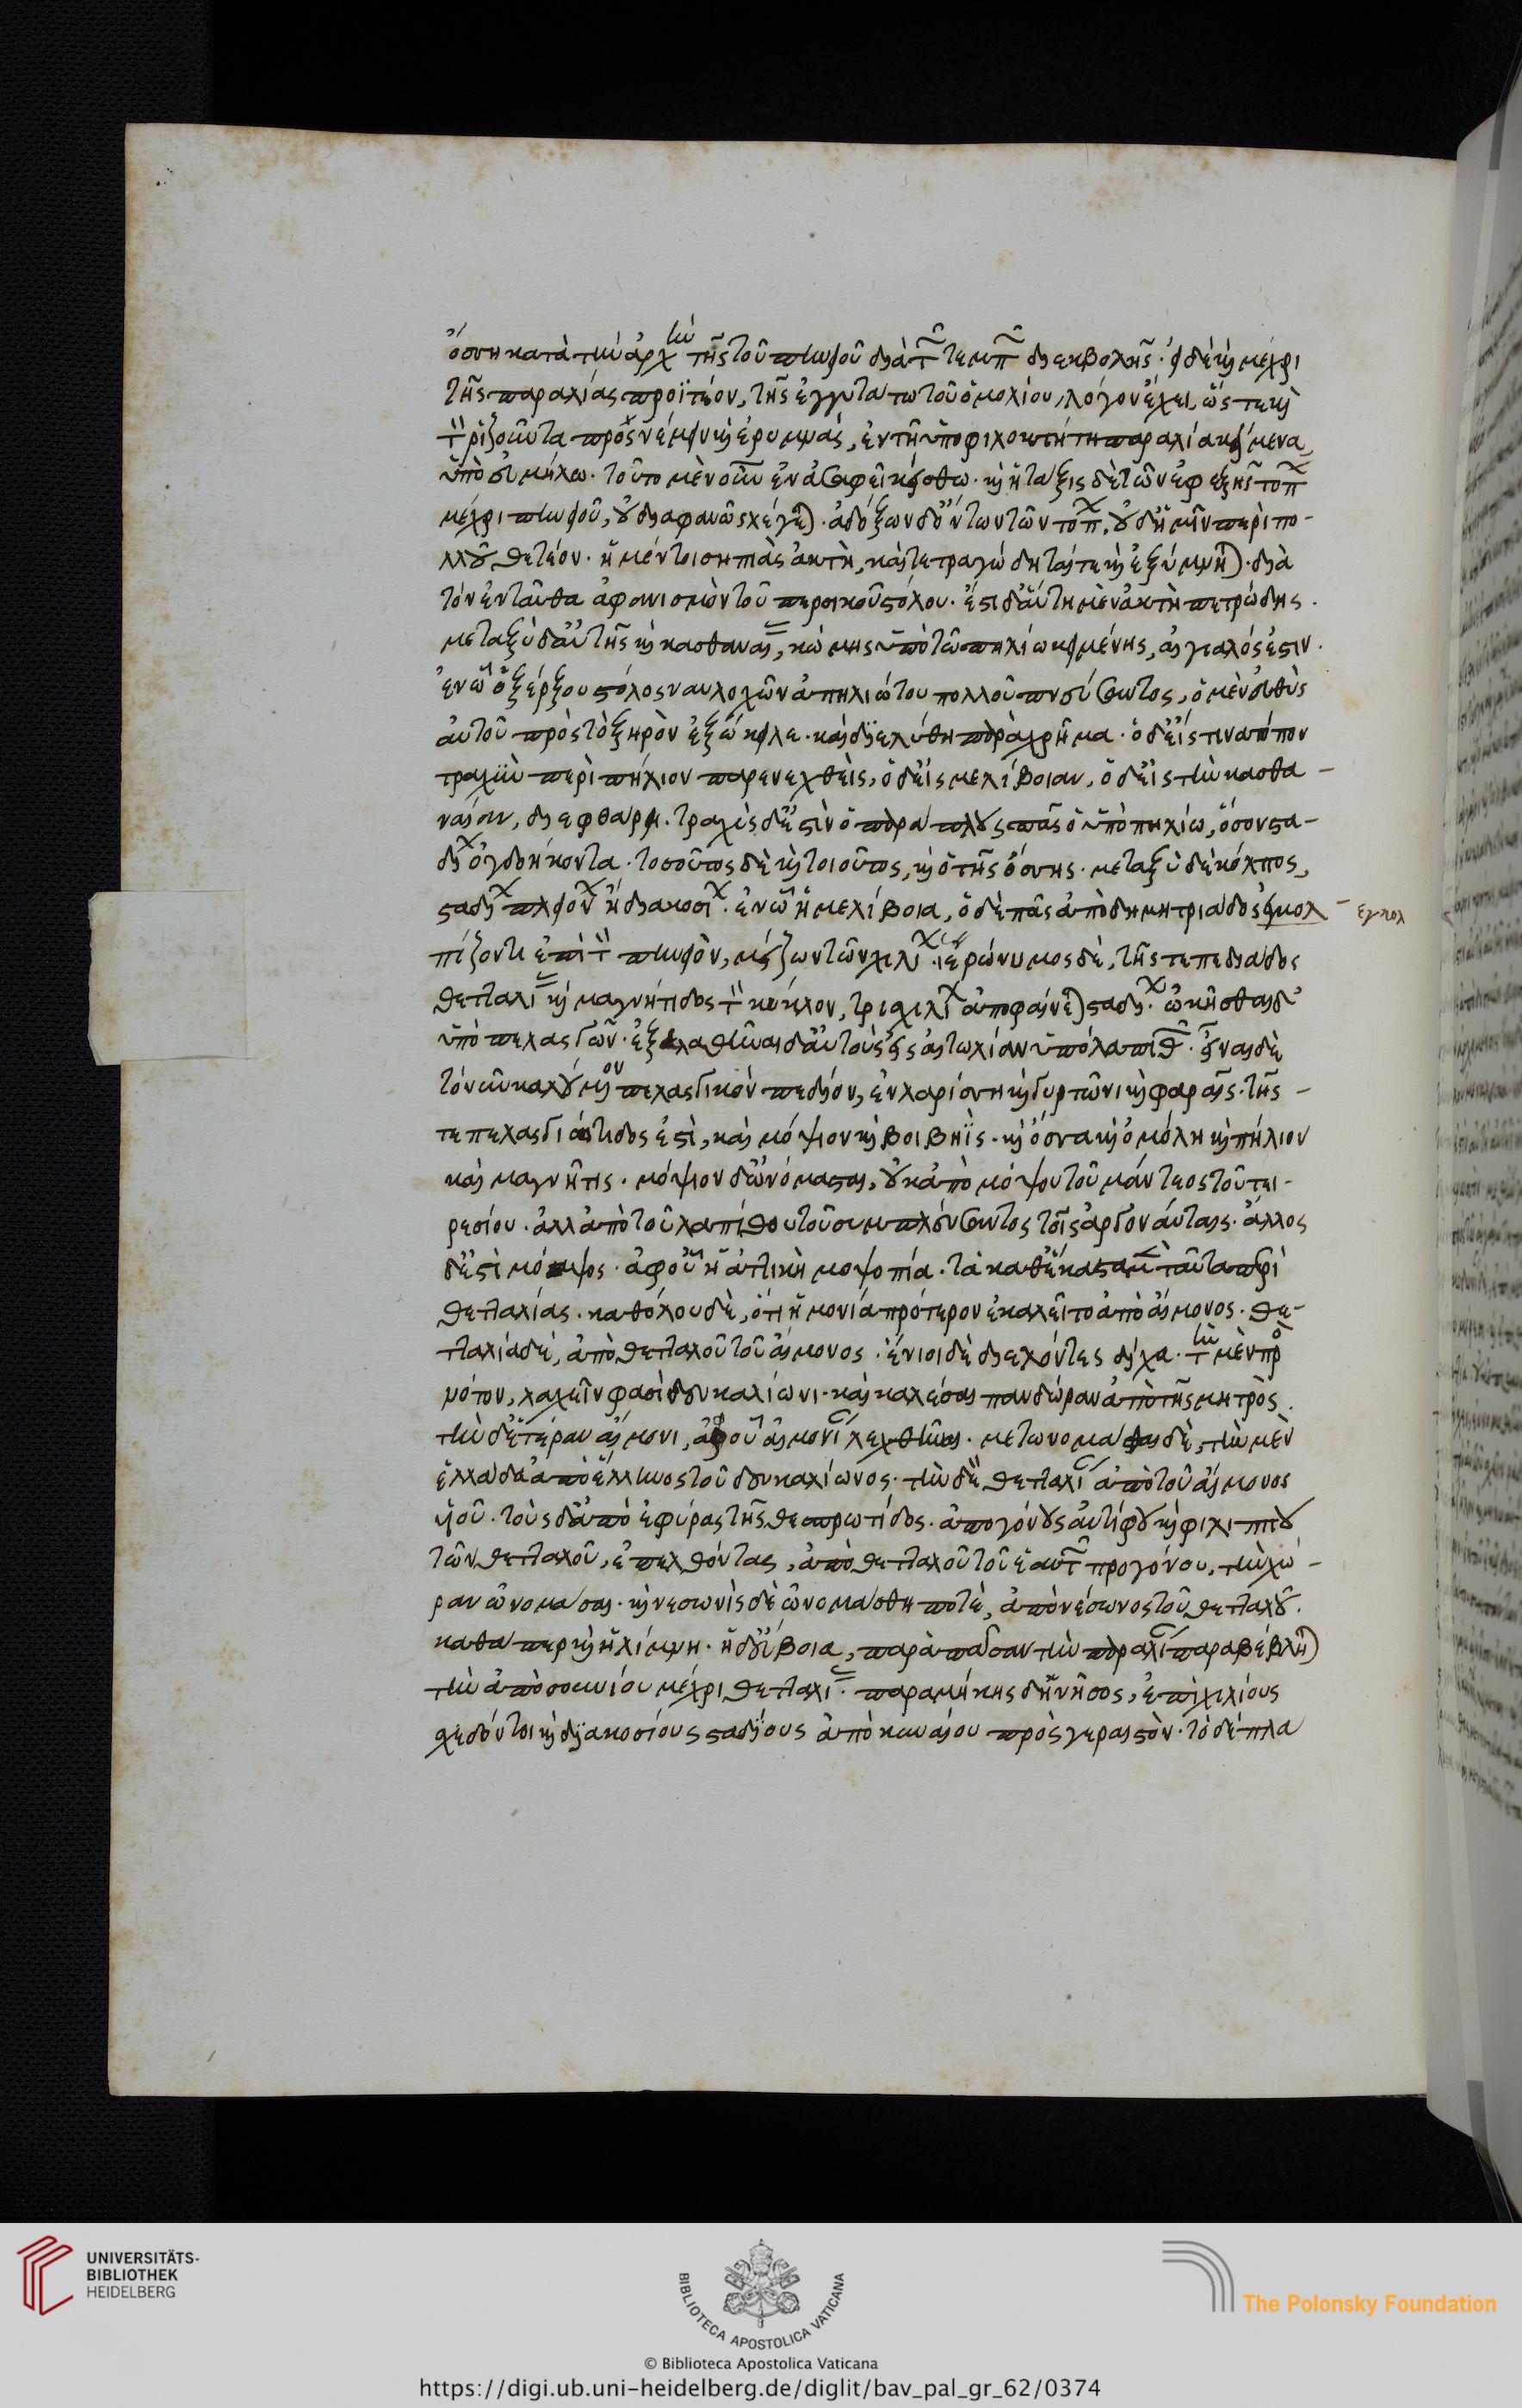 ὄσσῃ κατὰ τὴν ἀρχὴν τῆς τοῦ πηνειοῦ διὰ τῶν τεμπῶν διεκβολῆς· εἰ δὲ καὶ μέχρι
τῆς παραλίας προϊτέον, τῆς ἐγγυτάτω τοῦ ὁμολίου, λόγον ἔχει, ὥστε καὶ
τὸν ῥιζοῦντα προσνέμειν καὶ ἐρυμνάς, ἐν τῇ ὑπὸ φιλοκτήτῃ παραλίᾳ κείμενα,
ὑπὸ εὐμήλῳ. τοῦτο μὲν οὖν ἐν ἀσαφεῖ κείσθω. καὶ ἡ τάξις δὲ τῶν ἐφεξῆς τόπων
μέχρι πηνειοῦ, οὐ διαφανῶς λέγεται. ἀδόξων δ' ὄντων τῶν τόπων, οὐδ' ἡμῖν περὶ πο-
λλοῦ θετέον. ἡ μέντοι σηπιὰς ἀκτὴ, καὶ τετραγώδηταί τε καὶ ἐξύμνηται. διὰ
τὸν ἐνταῦθα ἀφανισμὸν τοῦ περσικοῦ στόλου. ἔστι δ' αὕτη μὲν ἀκτὴ πετρώδης.
μεταξὺ δ' αὐτῆς καὶ κασθαναίας, κώμης ὑπὸ τῷ πηλίῳ κειμένης, αἰγιαλός ἐστιν.
ἐν ᾧ ὁ ξέρξου στόλος ναυλοχῶν ἀπηλιώτου πολλοῦ πνεύσαντος, ὁ μὲν εὐθὺς
αὐτοῦ πρὸς τὸ ξηρὸν ἐξώκειλε. καὶ διελύθη παραχρῆμα. ὁ δ' εἰς ἰπνα τόπον
τραχὺν περὶ πήλιον παρενεχθεὶς, ὁ δ' εἰς μελίβοιαν, ὁ δ' εἰς τὴν κασθα-
ναίαν, διεφθάρη. τραχὺς δ' ἐστὶν ὁ παράπλους πᾶς ὁ ὑπὸ πηλίῳ, ὅσον στα-
δίων ὀγδοήκοντα. τοσοῦτος δὲ καὶ τοιοῦτος, καὶ ὁ τῆς ὄσσης. μεταξὺ δὲ κόλπος,
σταδίων πλειόνων ἢ διακοσίων. ἐν ᾧ ἡ μελίβοια, ὁ δὲ πᾶς ἀπὸ δημητριάδος ἐγκολ- εγκολ
πίζοντι ἐπὶ τὸν πηνειὸν, μείζων τῶν χιλίων. ἱερώνυμος δὲ, τῆς τε πεδιάδος
θετταλίας καὶ μαγνήτιδος τὸν κύκλον, τρισχιλίων ἀποφαίνεται σταδίων. ᾠκῆσθαι δ'
ὑπὸ πελασγῶν. ἐξελαθῆναι δ' αὐτοὺς εἰς αἰτωλίαν ὑπὸ λαπιθῶν. εἶναι δὲ
τὸν νῦν καλούμενον πελασγικὸν πεδίον, ἐν ᾧ λαρίσσῃ καὶ γυρτῶνι καὶ φεραῖς. τῆς
τε πελασγιώτιδος ἐστὶ, καὶ μόψιον καὶ βοιβηῒς. καὶ ὄσσα καὶ ὁμόλη καὶ πήλιον
καὶ μαγνῆτις. μόψιον δ' ὠνόμασται, οὐκ ἀπὸ μόψου τοῦ μάντεως τοῦ τει-
ρεσίου. ἀλλ' ἀπὸ τοῦ λαπίθου τοῦ συμπλεύσαντος τοῖς ἀργοναύταις. ἄλλος
δ' ἐστὶ μόψος. ἀφ' οὗ ἡ ἀττικὴ μοψοπία. τὰ καθ' ἕκαστα μὲν ταῦτα περὶ
θετταλίας. καθόλου δὲ, ὅτι ἡμονία πρότερον ἐκαλεῖτο ἀπὸ αἵμονος. θε-
τταλία δέ, ἀπὸ θετταλοῦ τοῦ αἵμονος. ἔνιοι δὲ διελόντες δίχα. τὴν μὲν πρὸς
νότον, λαχεῖν φασὶ δευκαλίωνι. καὶ καλέσαι πανδώραν ἀπὸ τῆς μητρὸς.
τὴν δ' ἑτέραν αἵμονι, ἀφ' οὗ αἱμονίαν λεχθῆναι. μετωνομάσθαι δὲ, τὴν μὲν
ἑλλάδα ἀπὸ ἕλληνος τοῦ δευκαλίωνος. τὴν δὲ θετταλίαν ἀπὸ τοῦ αἵμονος
υἱοῦ. τοὺς δ' ἀπὸ ἐφύρας τῆς θεσπρωτίδος. ἀπογόνους ἀντίφου καὶ φιλίππου
τῶν θετταλοῦ, ἐπελθόντας, ἀπὸ θετταλοῦ τοῦ ἑαυτῶν προγόνου, τὴν χώ-
ραν ὠνομάσαι. καὶ νεσωνὶς δὲ ὠνομάσθη ποτὲ, ἀπὸ νέσωνος τοῦ θετταλοῦ.
καθάπερ καὶ ἡ λίμνη. ἡ δ' εὔβοια, παρὰ πᾶσαν τὴν παραλίαν παραβέβληται
τὴν ἀπὸ σουνίου μέχρι θετταλίας. παραμήκης δ' ἡ νῆσος, ἐπὶ χιλίους
σχεδόν τοι καὶ διακοσίους σταδίους ἀπὸ κηναίου πρὸς γεραιστὸν. τὸ δὲ πλα
UNIVERSITÄTS-
BIBLIOTHEK
HEIDELBERG
BIBLIOTECA APOSTOLICA VATICANA
The Polonsky Foundation
© Biblioteca Apostolica Vaticana
https://digi.ub.uni-heidelberg.de/diglit/bav_pal_gr_62/0374